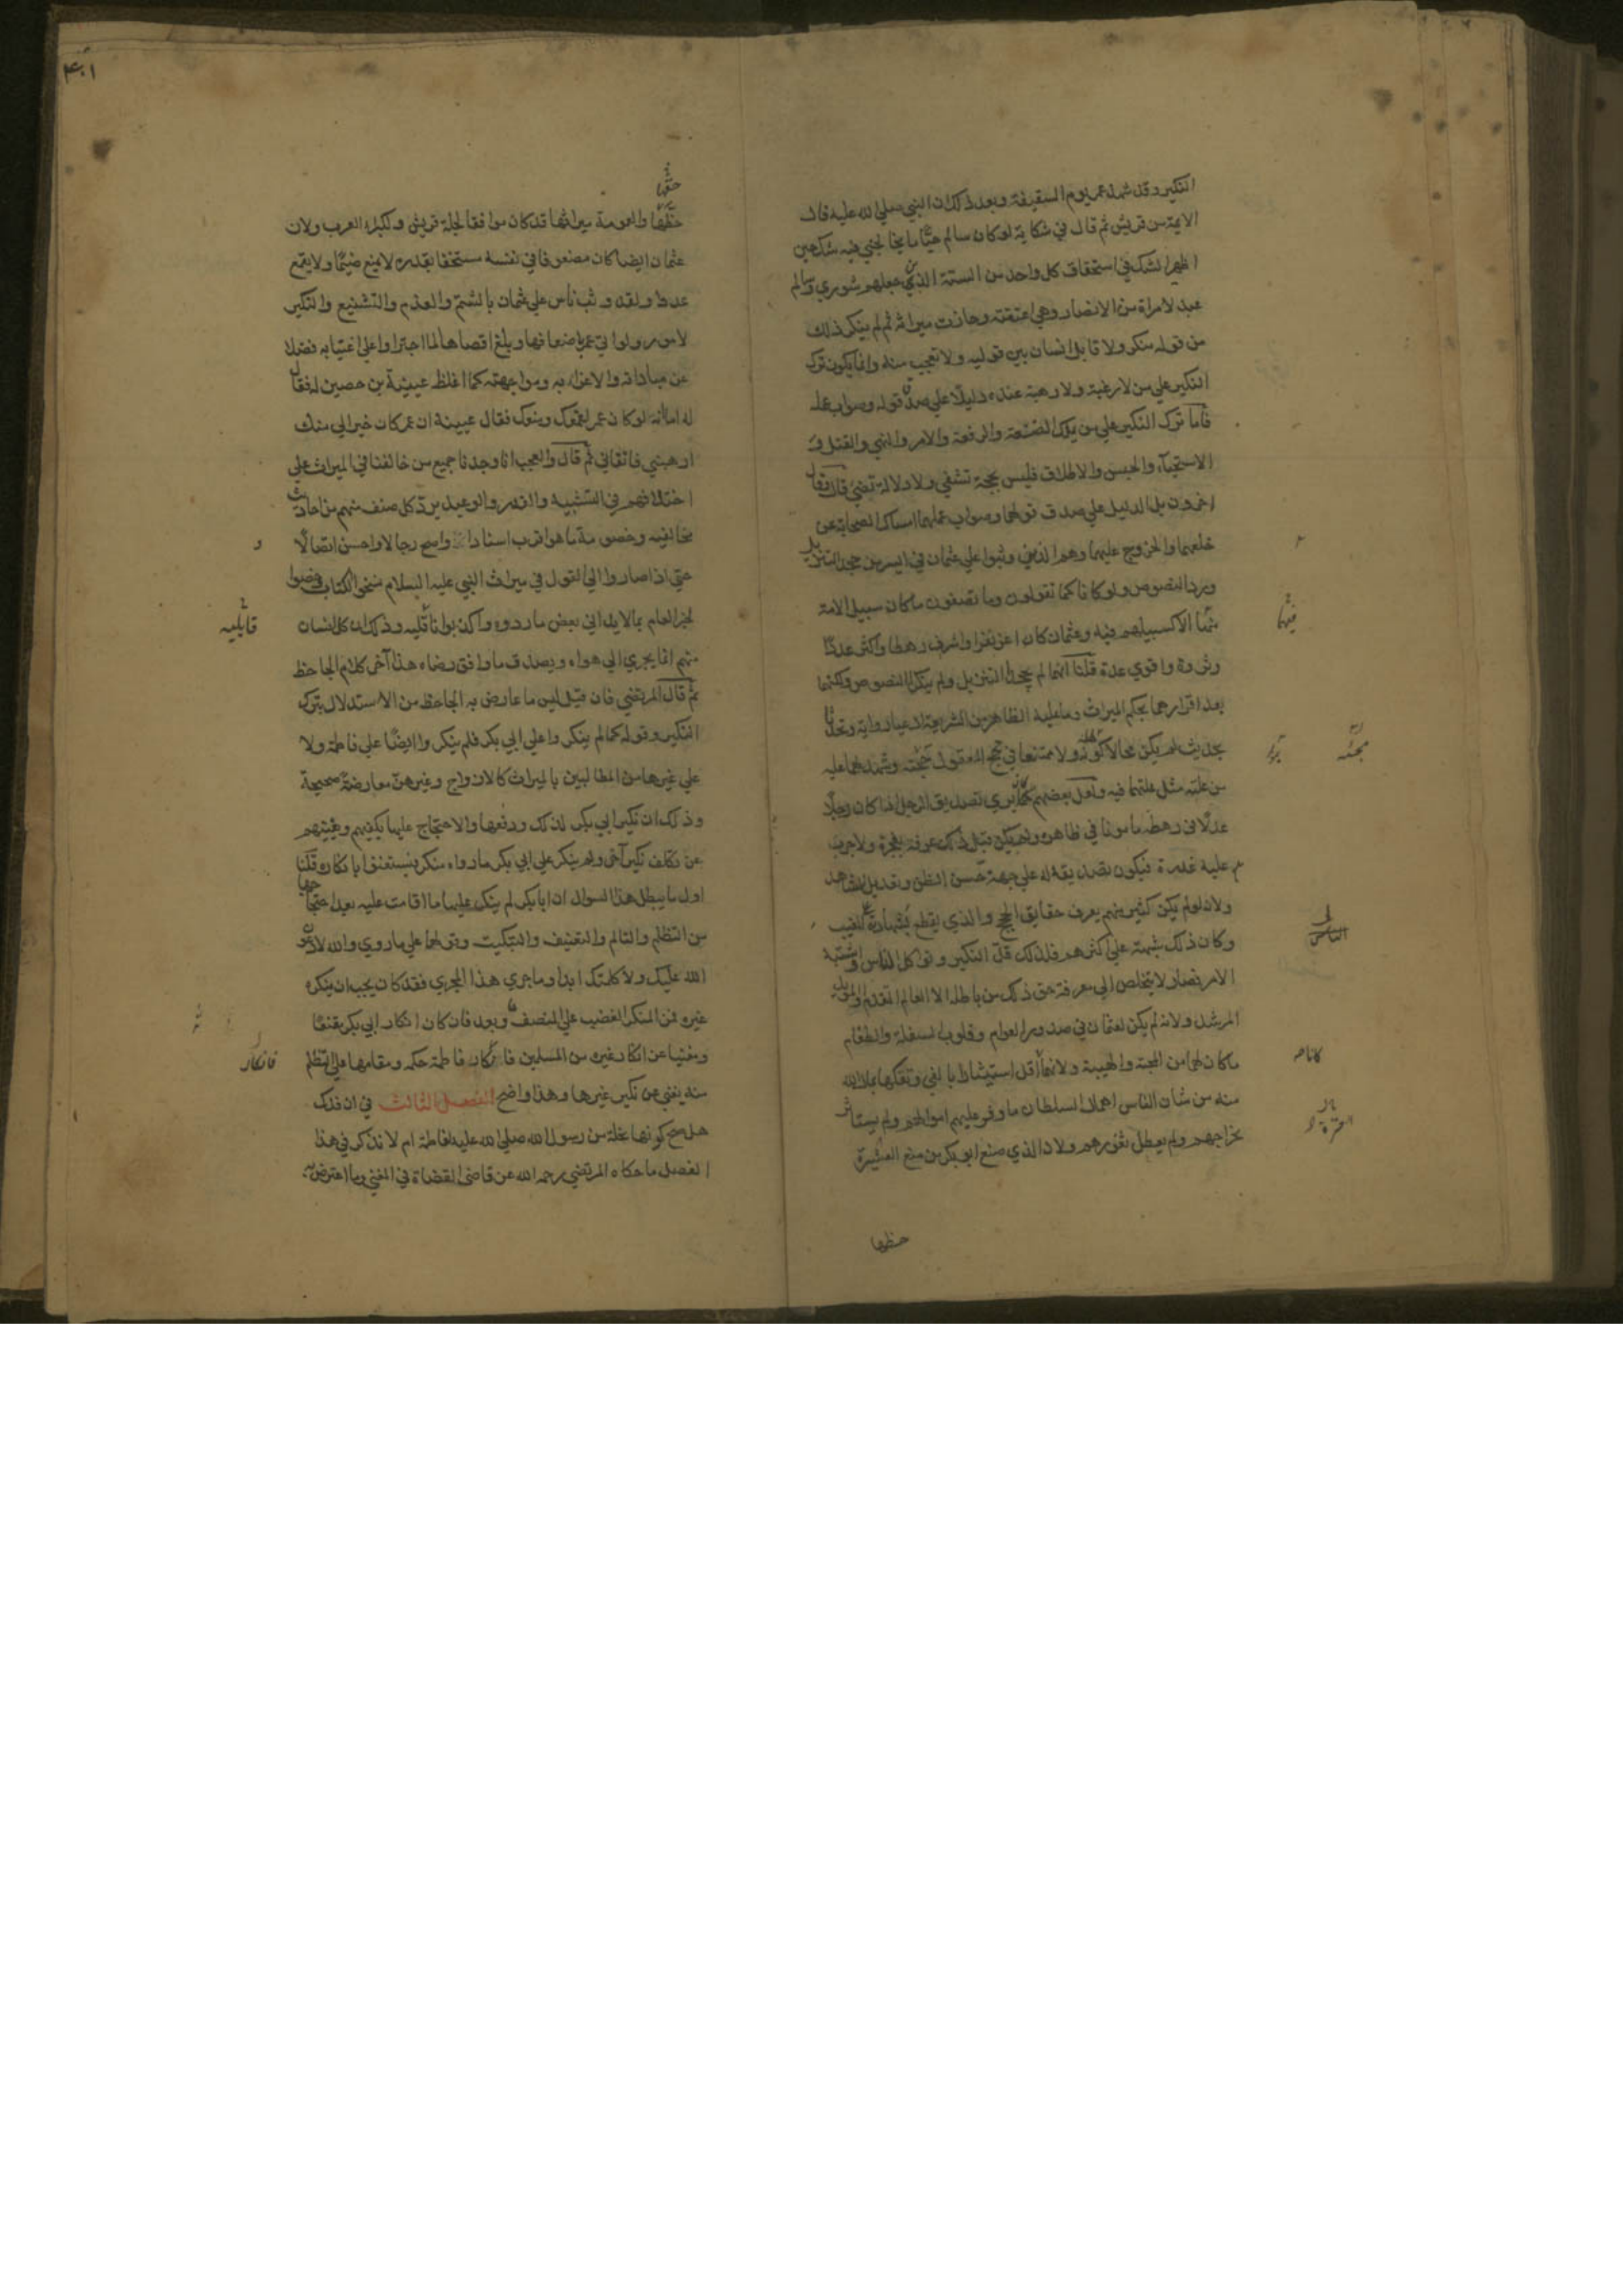 النكير وقد شهد عمر يوم السقيفة وبعد ذلك ان النبي صلى الله عليه قال
الايمة من قريش ثم قال في شكاية لو كان سالم حيًّا ما يخالجني فيه شك حين
اظهر الشك في استحقاق كل واحد من الستة الذين جعلهم شوري وسالم
عبد لامراة من الانصار وهي اعتقته وحازت ميراثه ثم لم ينكر ذلك
من قوله منكر ولا قابل انسان بين قوليه ولا تعجب منه وانما يكون ترك
النكير علي من لا رغبة ولا رهبة عنده دليلا علي صدق قوله وصواب عمله
فاما ترك النكير علي من يملك الضعة والرفعة والامر والنهي والقتل و
الاستحيآء والحبس والاطلاق فليس بحجة تشفي ولا دلالة تضيء قال وقال
اخرون بل الدليل علي صدق قولهما وصواب عملهما امساك الصحابة عن
خلعهما والخروج عليهما وهم الذين وثبوا علي عثمان في ايسر من جحد التنزيل
ورد النصوص ولو كانا كما تقولون وما تصفون ما كان سبيل الامة
فيهما الا كسبيلهم فيه وعثمان كان اعز نفرا واشرف رهطا واكثر عددًا
وثروة واقوي عدة قلنا انهما لم يجحدا التنزيل ولم ينكرا النصوص ولكنهما
بعد اقرارهما بحكم الميراث وما عليه الظاهر من الشريعة ادعيا رواية وتحدثا
بحديث لم يكن محالا كونه ولا ممتنعا في حجج العقول مجيئه وشهد لهما عليه
من علته مثل علتهما فيه ولعل بعضهم كان يري تصديق الرجل اذا كان رجلا
عدلًا في رهطه مامونا في ظاهره ولم يكن قبل ذلك عرفه بفجرة ولا جرب
عليه غدرة فيكون تصديقه له علي جهة حسن الظن وتعديل الشاهد
ولانه لم يكن كثير منهم يعرف حقايق الحجج والذي يقطع بشهادته علي الغيب
وكان ذلك شبهة علي اكثرهم فلذلك قل النكير وتواكل الناس واشتبه
الامر فصار لا يتخلص الي معرفة حق ذلك من باطله الا العالم المتقدم والمؤيد
المرشد ولانه لم يكن لعثمان في صدور العوام وقلوب السفلة والطغام
ما كان لهما من المحبة والهيبة ولانهما كانا اقل استيثارا بالفي وتفكها بمال الله
منه من شان الناس اهمال السلطان ما وفر عليهم اموالهم ولم يستاثر
بخراجهم ولم يعطل ثغورهم ولان الذي صنع ابو بكر من منع العشيرة
حظها
حقها
حظها والعمومة ميراثها قد كان موافقا لجلة قريش ولكبراء العرب ولان
عثمان ايضا كان مضعوفا في نفسه مستخفا بقدره لا يمنع ضيمًا ولا يقمع
عدوا ولقد وثب ناس علي عثمان بالشتم والعذم والتشنيع والنكير
لامور لو اتي عمر اضعافها وبلغ اقصاها لما اجتراوا علي اغتيابه فضلا
عن مباداته والاغراء به ومواجهته كما اغلظ عيينة بن حصين له فقال
له اما انه لو كان عمر لقمعك ومنعك فقال عيينة ان عمر كان خيرا لي منك
ارهبني فاتقاني ثم قال والعجب انا وجدنا جميع من خالفنا في الميراث علي
اختلافهم في التشبيه والقدر والوعيد يرد كل صنف منهم من احاديث
مخالفيه وخصومه ما هو اقرب اسنادا واصح رجالا واحسن اتصالًا
حتي اذا صاروا الي القول في ميراث النبي عليه السلام نسخوا الكتاب وخصوا
الخبر العام بما لا يداني بعض ما ردوه واكذبوا ناقليه وذلك ان كل انسان
قايليه
منهم انما يجري الي هواه ويصدق ما وافق رضاه هذا آخر كلام الجاحظ
ثم قال المرتضي فان قيل ليس ما عارض به الجاحظ من الاستدلال بترك
النكير وقوله كما لم ينكروا علي ابي بكر فلم ينكروا ايضًا علي فاطمة ولا
علي غيرها من المطالبين بالميراث كالازواج وغيرهن معارضة صحيحة
وذلك ان نكير ابي بكر لذلك ودفعها والاحتجاج عليها يكفيهم ويغنيهم
عن تكلف نكير آخر ولم ينكر علي ابي بكر ما رواه منكر فيستغنوا بانكاره قلنا
اول ما يبطل هذا السوال ان ابا بكر لم ينكر عليها ما اقامت عليه بعد احتجاجها
من التظلم والتالم والتعنيف والتبكيت وقولها علي ما روي والله لادعون
الله عليك ولا كلمتك ابدا وما جري هذا المجري فقد كان يجب ان ينكره
غيره فمن المنكر الغضب علي المنصف وبعد فان كان انكار ابي بكر مقنعًا
ومغنيا عن انكار غيره من المسلمين فانكار فاطمة حكمه ومقامها علي التظلم
فانكار
منه يغني عن نكير غيرها وهذا واضح الفصل الثالث في ان فدك
هل صح كونها نحلة من رسول الله صلي الله عليه لفاطمة ام لا نذكر في هذا
الفصل ما حكاه المرتضي رحمه الله عن قاضي القضاة في المغني وما اعترض به